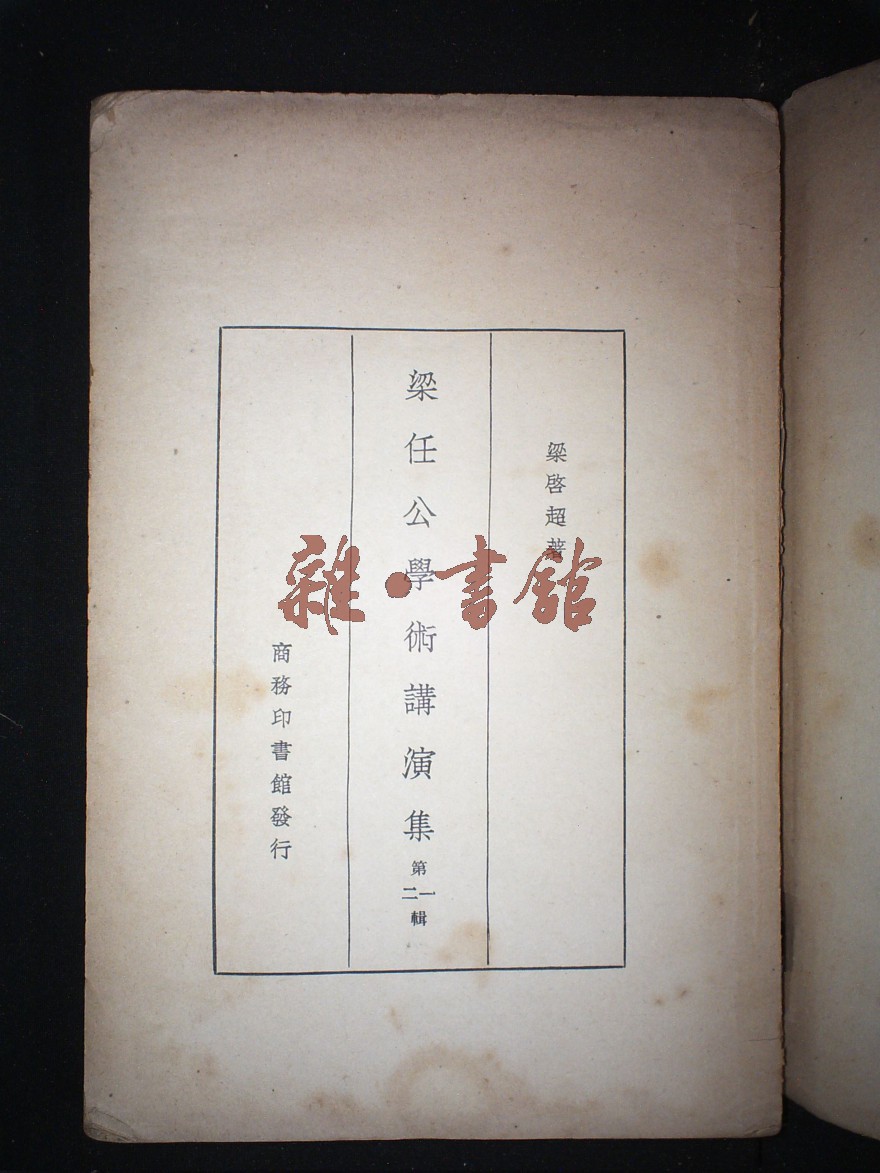 梁啓超著
梁任公學術講演集
第
一二
輯
商務印書館發行
雜·書館